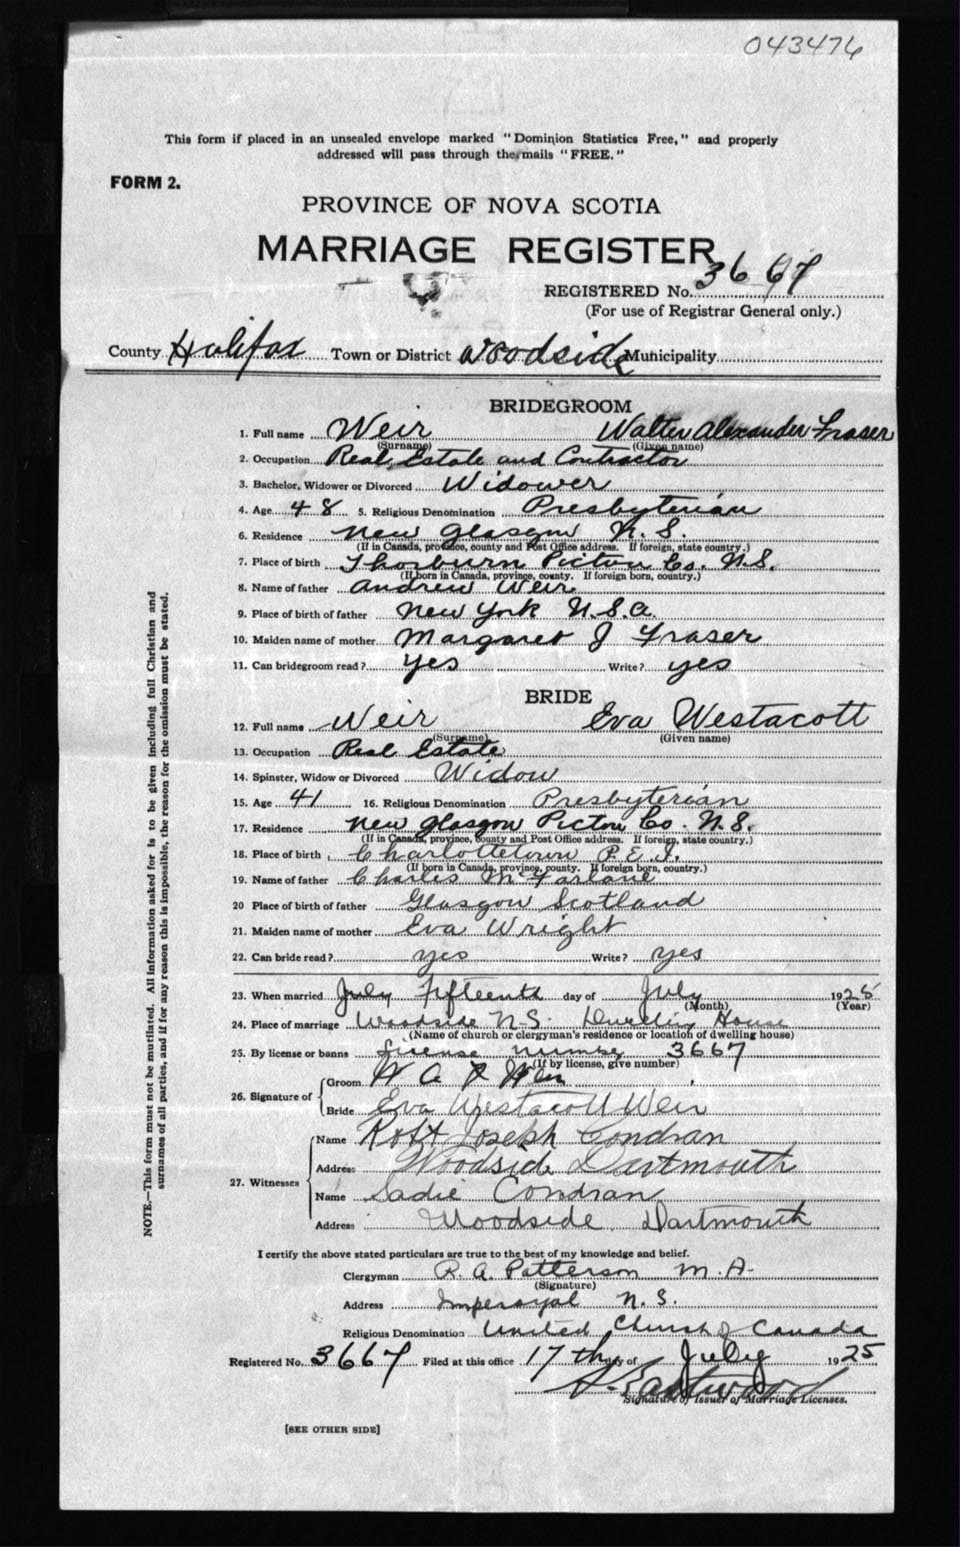 043476
This form if placed in an unsealed envelope marked "Dominion Statistics Free," and properly
addressed will pass through the mails "FREE."
FORM 2.
PROVINCE OF NOVA SCOTIA
MARRIAGE REGISTER
REGISTERED No. 3667
(For use of Registrar General only.)
County Halifax Town or District Woodside Municipality
BRIDEGROOM
1. Full name Weir Walter Alexander Fraser
(Surname) (Given name)
2. Occupation Real Estate and Contractor
3. Bachelor, Widower or Divorced Widower
4. Age 48 5. Religious Denomination Presbyterian
6. Residence New Glasgow N.S.
(If in Canada, province, county and Post Office address. If foreign, state country.)
7. Place of birth Thorburn Pictou Co. N.S.
(If born in Canada, province, county. If foreign born, country.)
8. Name of father Andrew Weir
9. Place of birth of father New York U.S.A.
10. Maiden name of mother Margaret J Fraser
11. Can bridegroom read? Yes Write? yes
BRIDE
12. Full name Weir Eva Westacott
(Surname) (Given name)
13. Occupation Real Estate
14. Spinster, Widow or Divorced Widow
15. Age 41 16. Religious Denomination Presbyterian
17. Residence New Glasgow Pictou Co. N.S.
(If in Canada, province, county and Post Office address. If foreign, state country.)
18. Place of birth Charlottetown P.E.I.
(If born in Canada, province, county. If foreign born, country.)
19. Name of father Charles McFarlane
20 Place of birth of father Glasgow Scotland
21. Maiden name of mother Eva Wright
22. Can bride read? yes Write? yes
23. When married July Fifteenth day of July 1925
(Month) (Year)
24. Place of marriage Woodside N.S. Dwelling House
(Name of church or clergyman's residence or location of dwelling house)
25. By license or banns License number 3667
(If by license, give number)
26. Signature of Groom W A F Weir
Bride Eva Westacott Weir
27. Witnesses Name Robt Joseph Condran
Address Woodside Dartmouth
Name Sadie Condran
Address Woodside Dartmouth
I certify the above stated particulars are true to the best of my knowledge and belief.
Clergyman R. A. Patterson M.A.
(Signature)
Address Imperoyal N.S.
Religious Denomination United Church of Canada
Registered No. 3667 Filed at this office 17th day of July 1925
Eastwood
Signature of Issuer of Marriage Licenses.
[SEE OTHER SIDE]
NOTE.—This form must not be mutilated. All information asked for is to be given including full Christian and
surnames of all parties, and if for any reason this is impossible, the reason for the omission must be stated.